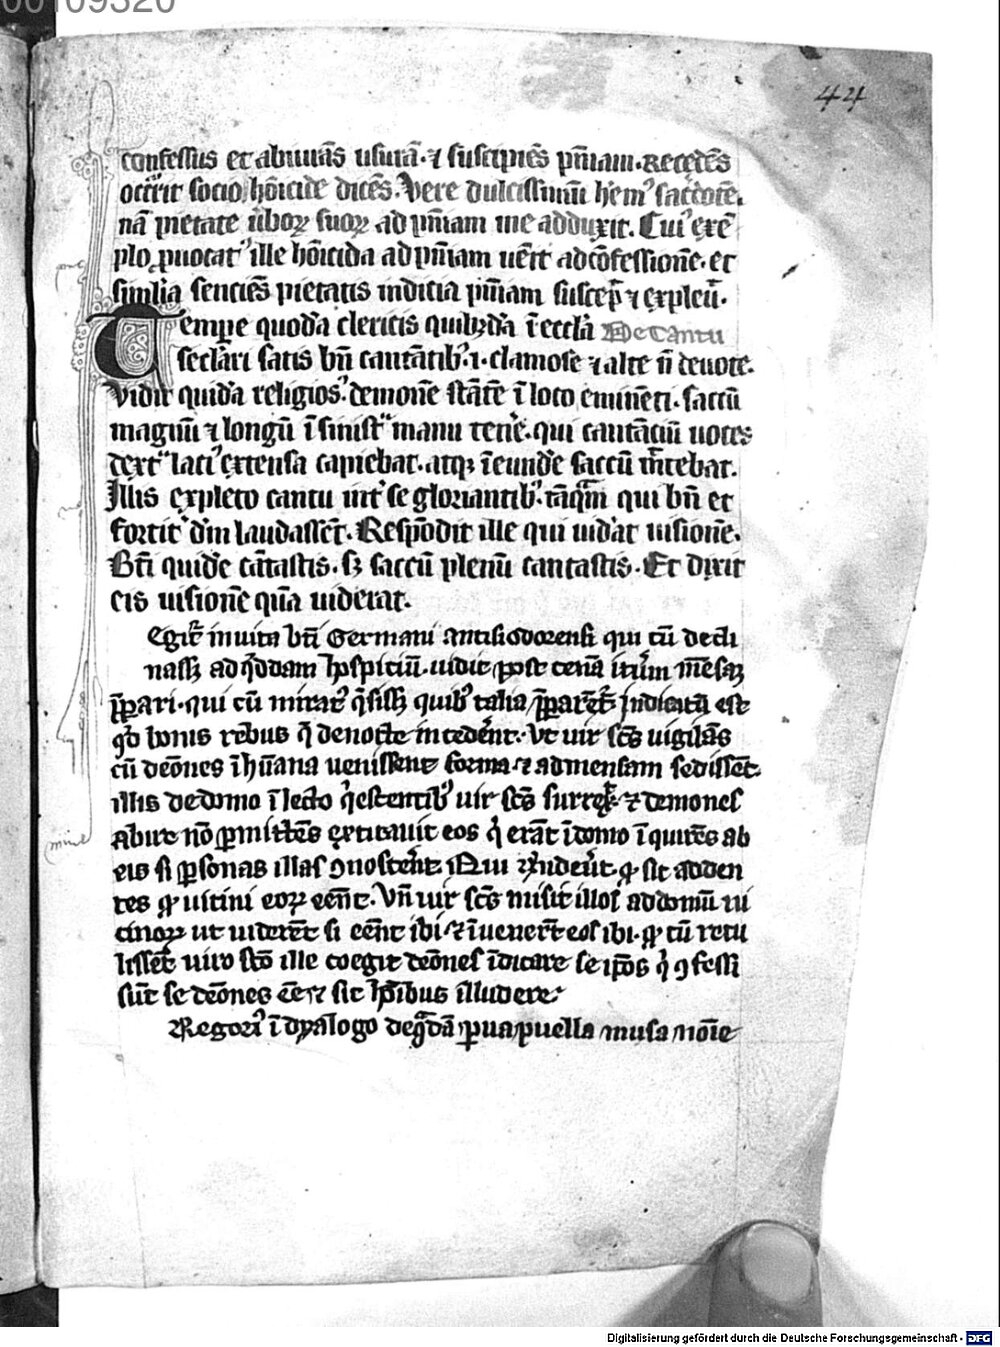 00109320
44
confessus et abiurās usurā · ⁊ suscipiēs pn̄iam · Recedēs
occ̄rit socio hōicide dicēs · Vere dulcissimū hēmꝰ sacdotē ·
nā pietate ūboꝝ suoꝝ ad pn̄iam me adduxit · Cuiꝰ exē
plo ꝓuocatꝰ ille hōicida ad pn̄iam uēit ad cōfessionē · et
similia senciēs pietatis indicia pn̄iam suscep̄ ⁊ expleū ·
Tempe quodā clericis quibꝰdā ī ecclā De cantu
seclāri satis bn̄ cantātibꝰ · i · clamose ⁊ alte n̄ deuote ·
Vidit quidā religiosꝰ demonē stātē ī loco eminēti · saccū
magnū ⁊ longū ī sinistᵃ manu tenēe · qui cantāciū uoces
dextᵃ latiꝰ extensa capiebat · atqꝫ ī eundē saccū mittebat ·
Illis expleto cantu int̄ se gloriantibꝰ · tāqm̄ qui bn̄ et
fortit̄ dm̄ laudassēt · Respōdit ille qui uidat uisionē ·
Bn̄ quidē cātastis · sꝫ saccū plenū cantastis · Et dixit
eis uisionē quā uiderat ·
Legit̄ in uita bt̄i Germani antisiodorensis qui cū decli
nassꝫ ad qddam hospiciū · uidit post cenā itūm mēsaꝫ
p̄pari · qui cū miratꝰ q̄sissꝫ quibꝰ talia p̄parēt̄ Indicatū est
qd bonis rebus q̄ de nocte incedēnt · Vt uir scs̄ uigilās
cū dēones ī hūana uenissent forma ⁊ ad mensam sedissēt ·
illis de domo ī lecto q̄escentibꝰ uir scs̄ surrex̄ · ⁊ demones
abire nō ꝑmittēs excitauit eos q̄ erāt ī domo īquirēs ab
eis si ꝑsonas illas ꝯnoscēnt · Qui r̄ndeūt · ꝙ sic adden
tes ꝙ uicini eoꝝ eēnt · Vn̄ uir scs̄ misit illos ad domū ui
cinoꝝ ut uiderēt si eēnt ibi · ⁊ īuenert̄ eos ibi · ꝙ cū retu
lissēt uiro sc̄o ille coegit dēones īdicare se ip̄os q̄ ꝯfessi
sūt se dēones eē ⁊ sic hōibus illudere ·
Regoriꝰ ī dyalogo de qdā ꝑua puella musa nōie
Digitalisierung gefördert durch die Deutsche Forschungsgemeinschaft - DFG